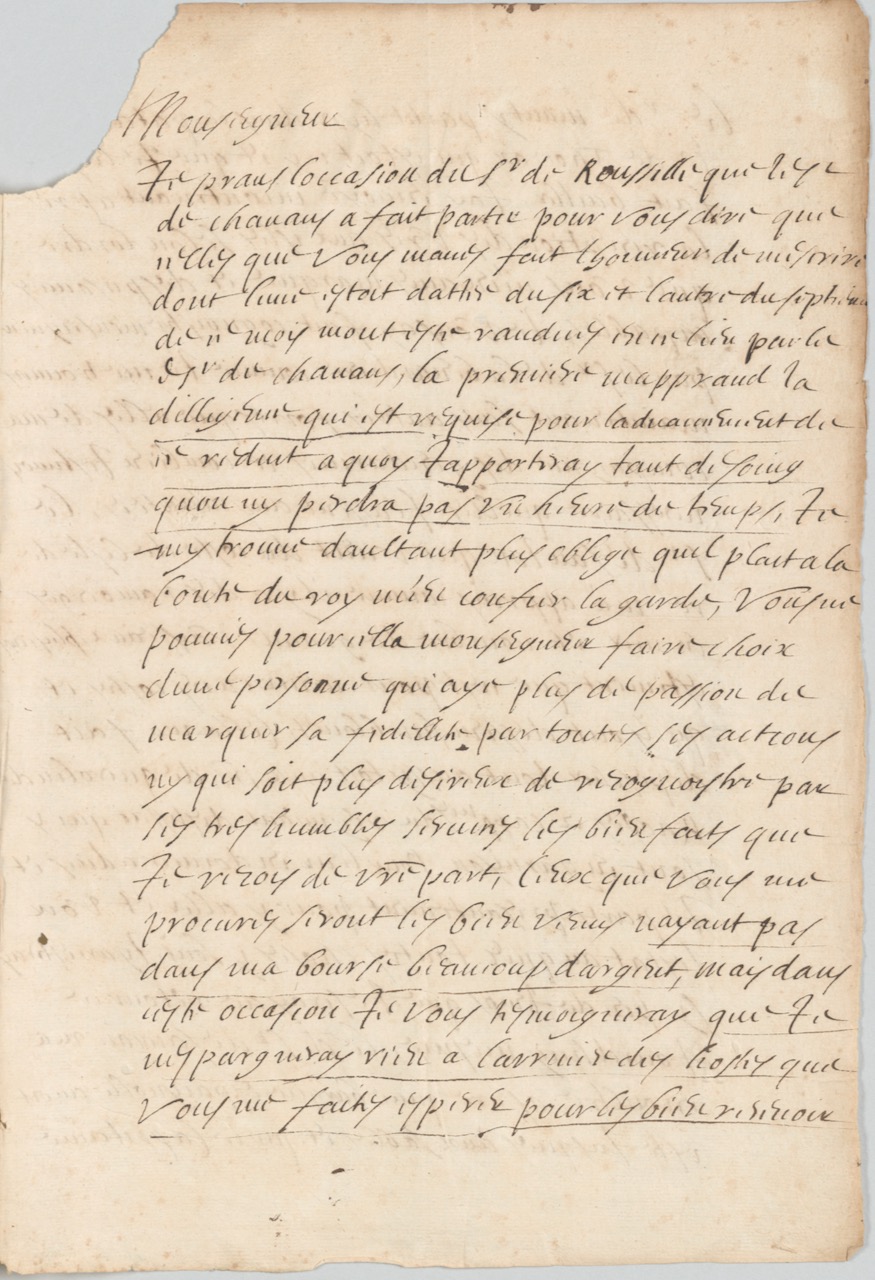 Monseigneur
Je prans loccasion du Sr de Roussille que le Sr
de chauans a fait partir pour vous dire que
celles que vous maues fait lhonneur de mescrire
dont lune estoit dattée du six et lautre du septiesme
de ce mois mont este randues en ce lieu par le
Sr de chauans, la premiere mapprand la
dilligense qui est requise pour laduancement de
ce reduit a quoy Japporteray tant de soing
quon ny perdra pas vne heure de temps, Je
my trouue daultant plus oblige quil plait a la
bonté du roy men confier la garde, Vous ne
pouuies pour cella monseigneur faire choix
dune personne qui aye plus de passion de
marquer sa fidellité par toutes ses actions
ny qui soit plus desireux de recognoistre par
ses tres humbles seruices les bien faits que
Je recois de vre part, Ceux que vous me
procures seront les bien venus nayant pas
dans ma bourse beaucoup dargent, mais dans
ceste occasion Je vous tesmoigneray que Je
nespargneray rien a larriuée des hostes que
Vous me faites esperer pour les bien receuoir